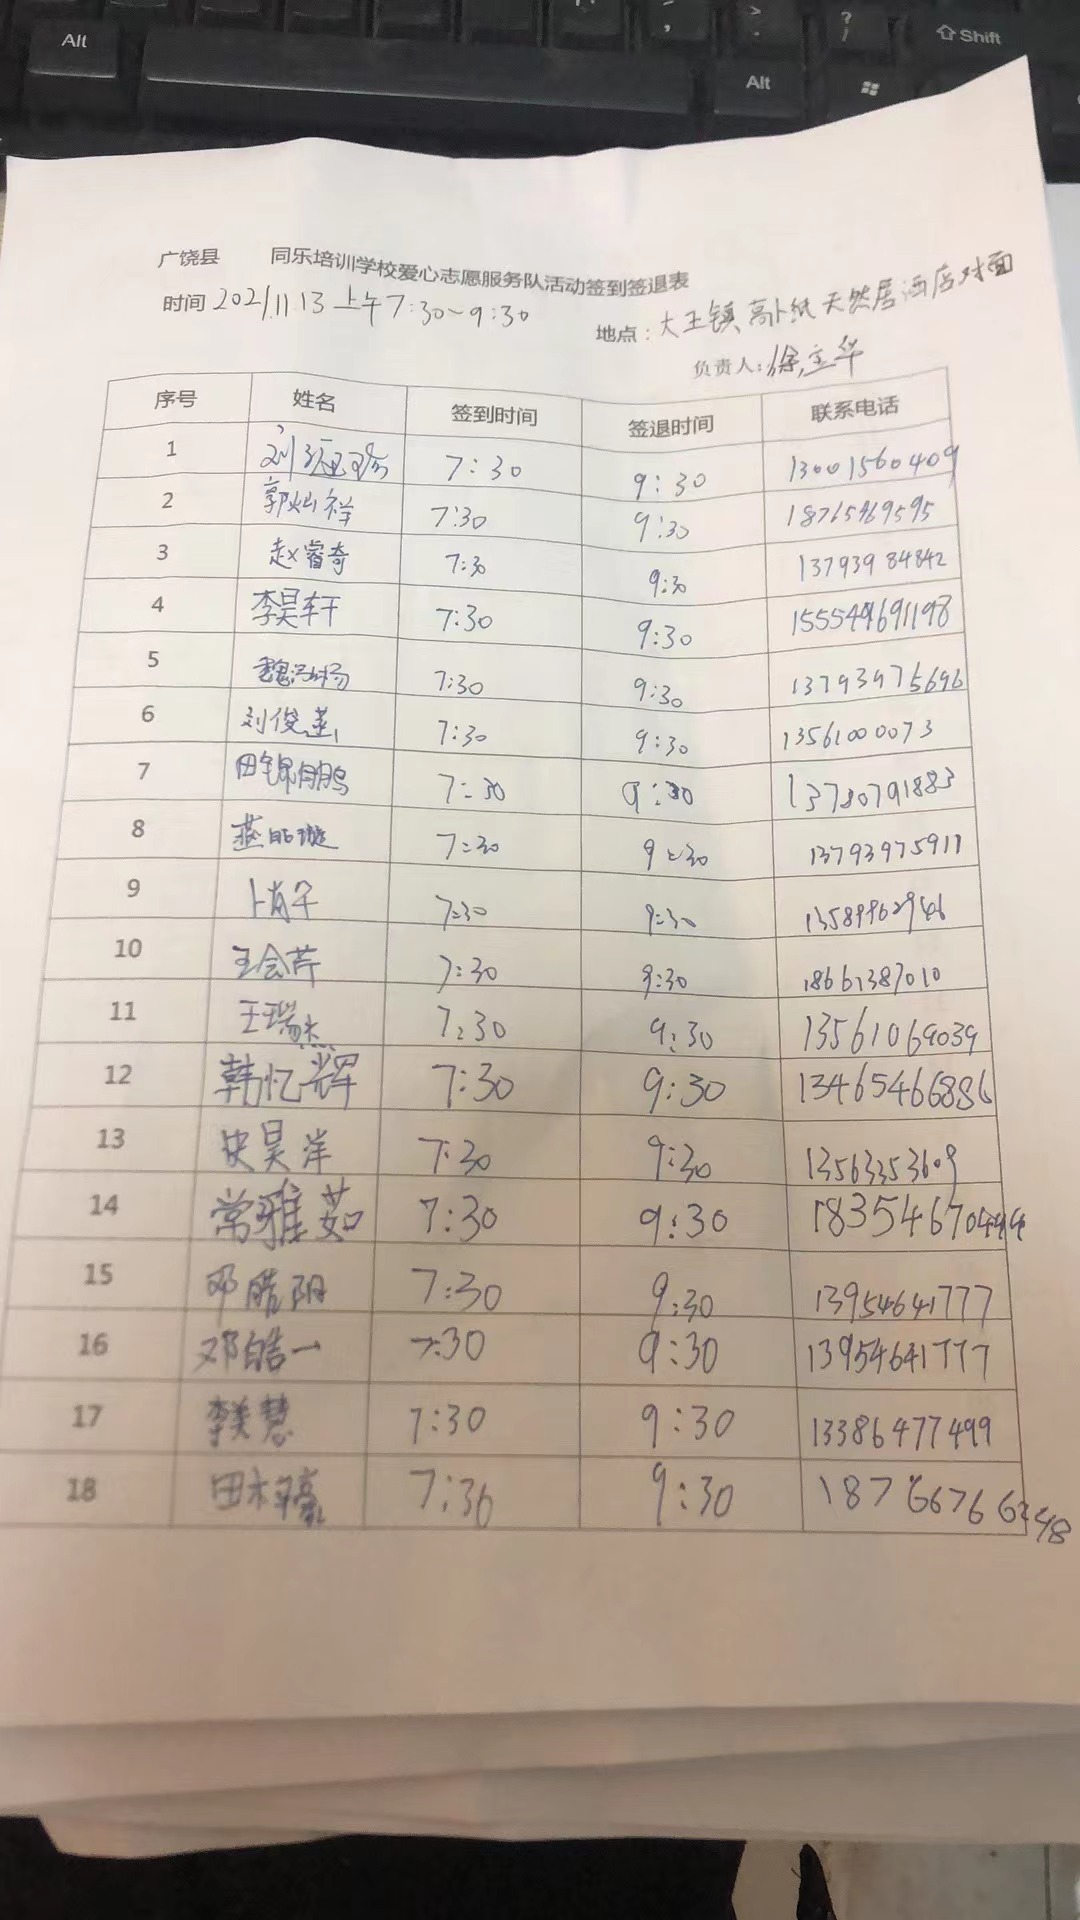 Alt
Alt
Shift
广饶县 同乐培训学校爱心志愿服务队活动签到签退表
时间 2021.11.13 上午7:30~9:30
地点：大王镇 天然居酒店对面
负责人：徐立华
序号 姓名 签到时间 签退时间 联系电话
1 7:30 9:30 13001560409
2 郭灿祥 7:30 9:30 18765469595
3 赵睿奇 7:30 9:30 13793984842
4 李昊轩 7:30 9:30
5 7:30 9:30 13793975696
6 7:30 9:30 13561000073
7 田锦鹏 7:30 9:30 13780791883
8 7:30 9:30 13793975911
9 7:30 9:30
10 王会芹 7:30 9:30 18661387010
11 王瑞杰 7:30 9:30 13561069039
12 韩忆辉 7:30 9:30 13465466886
13 史昊洋 7:30 9:30 13563353609
14 常雅茹 7:30 9:30 18354670444
15 邓皓阳 7:30 9:30 13954641777
16 邓皓一 7:30 9:30 13954641777
17 李美慧 7:30 9:30 13386477499
18 7:30 9:30